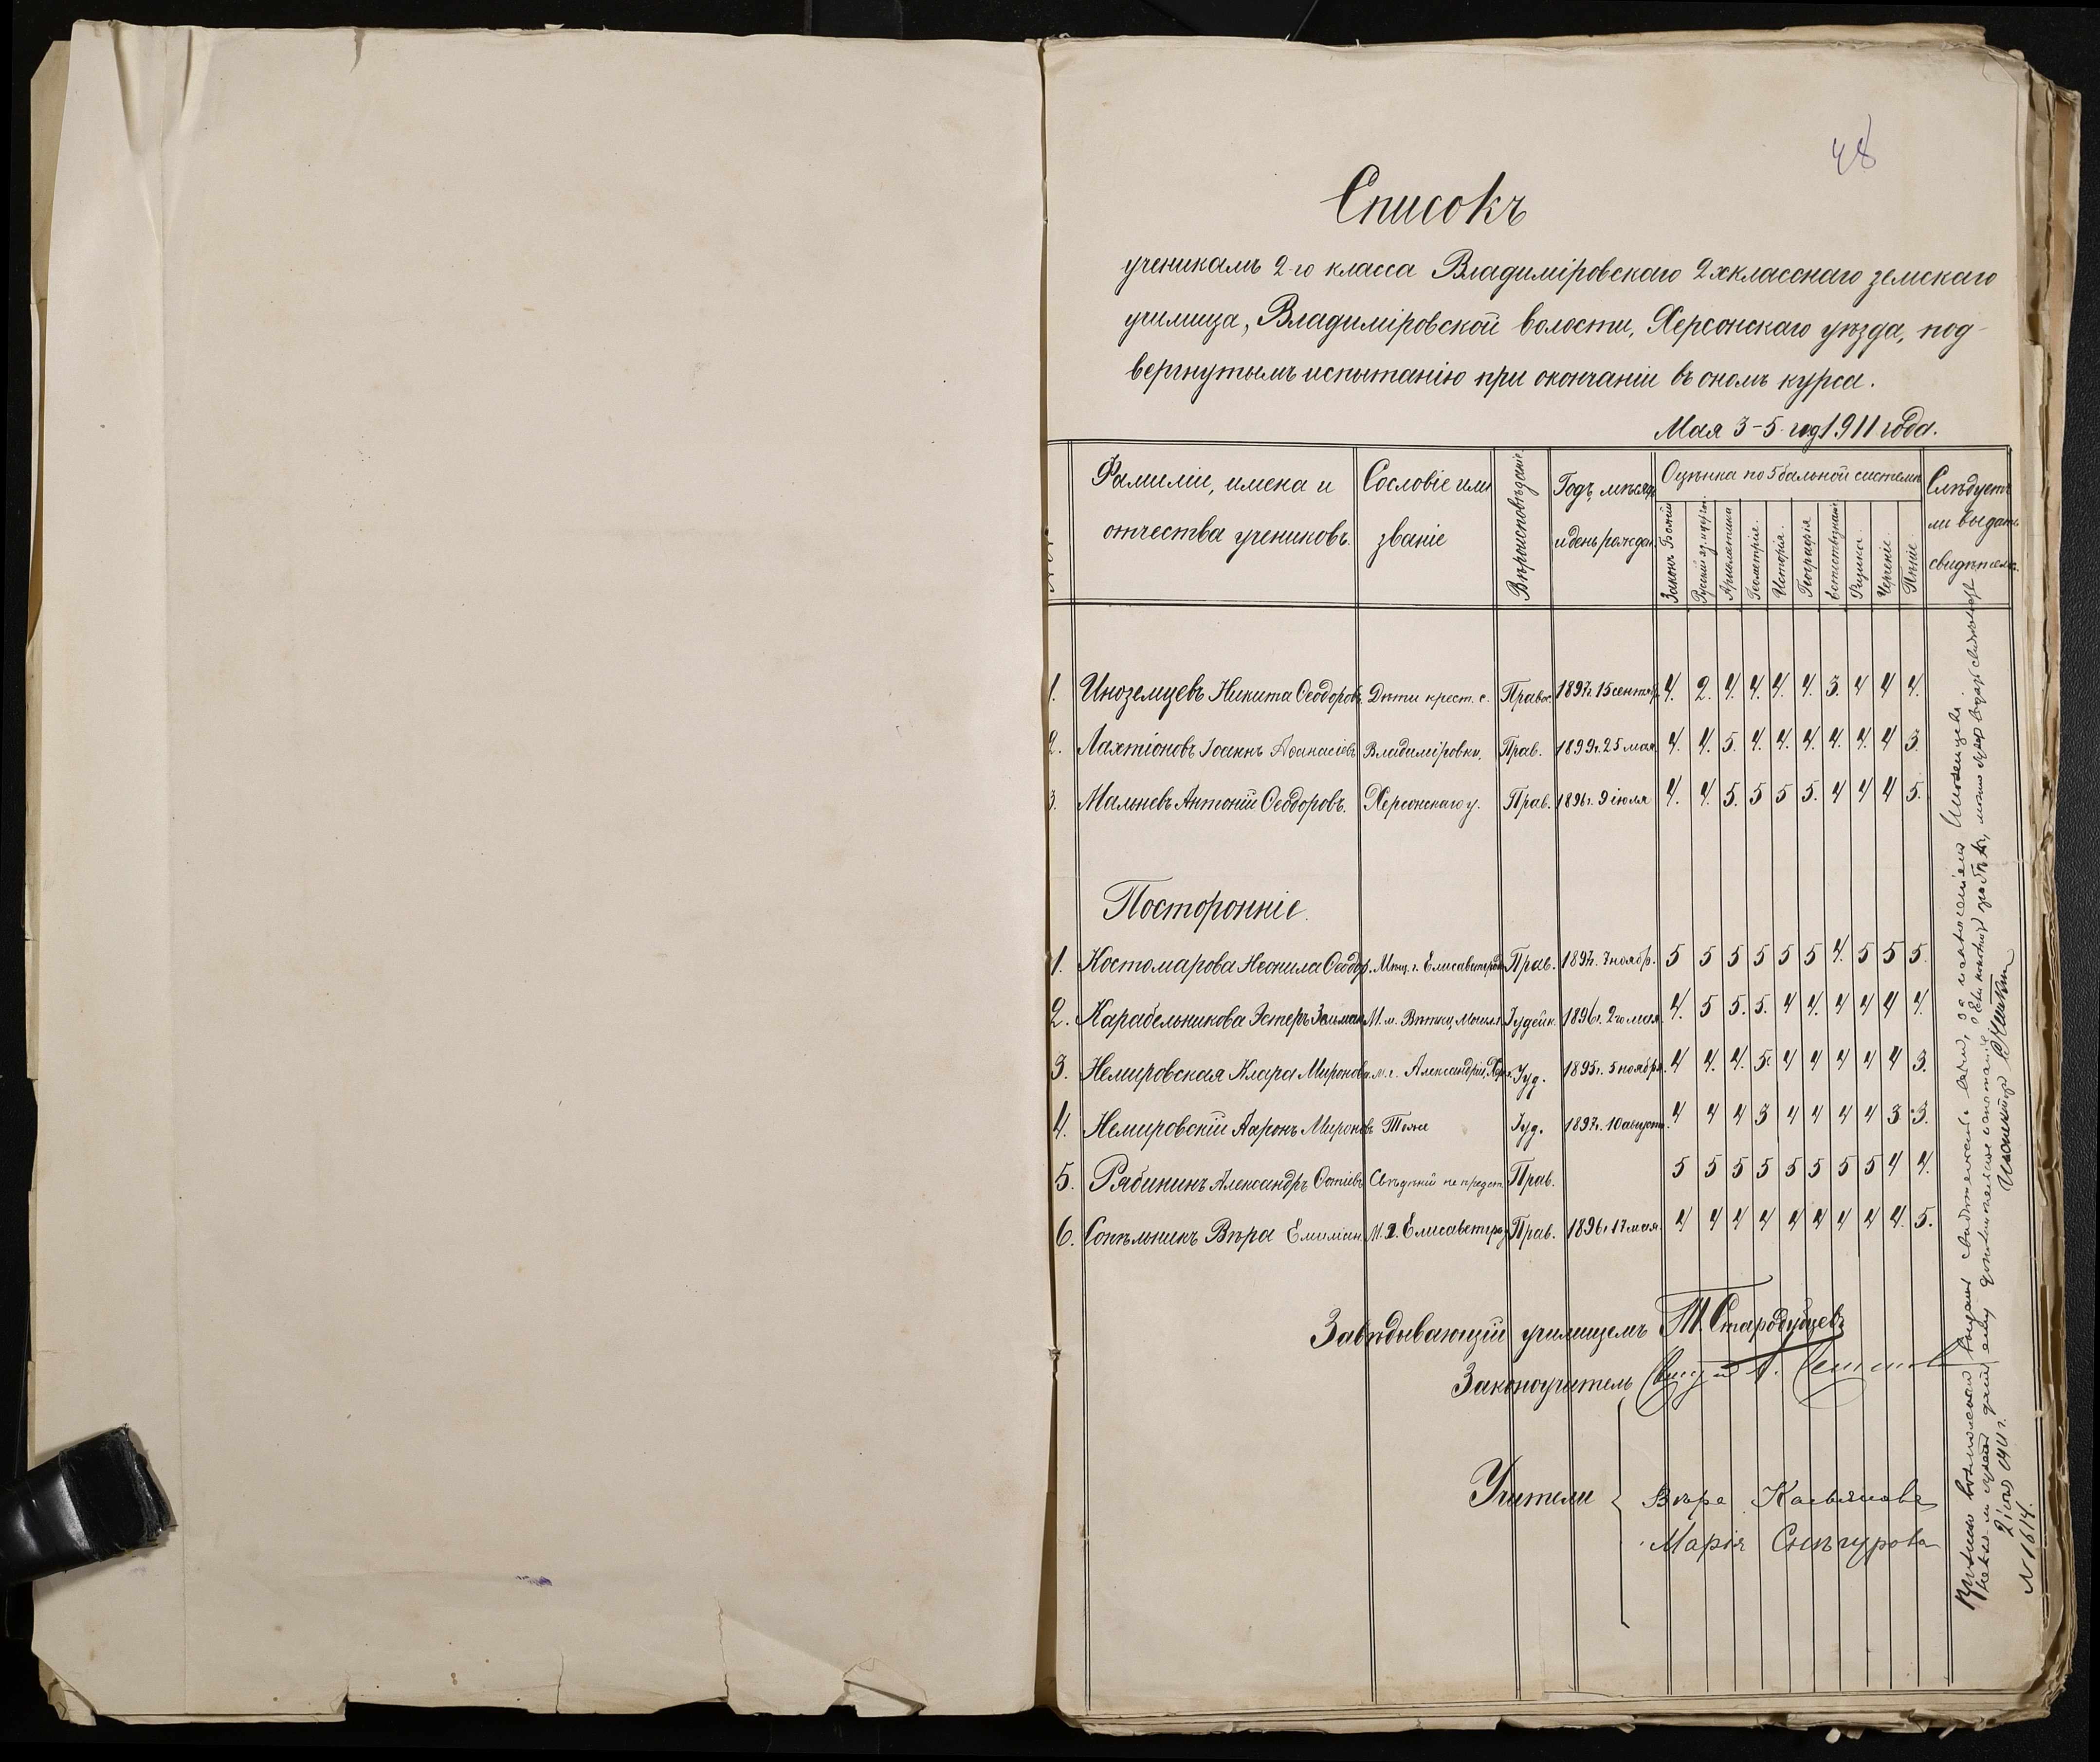 48
Списокъ
ученикамъ 2-го класса Владиміровскаго 2хкласснаго земскаго
училища, Владиміровской волости, Херсонскаго уѣзда, под-
вергнутымъ испытанію при окончаніи въ ономъ курса.
Мая 3-5 1911 года.
Фамиліи, имена и отчества учениковъ. Сословіе или званіе Вѣроисповѣданіе. Годъ, мѣсяцъ и день рожден. Оцѣнка по 5 бальной системѣ Слѣдуетъ ли выдать свидѣтельс.
Законъ Божій Русскій яз. Ариѳметика Геометрія. Исторія. Географія Естествознаніе Физика. Черченіе. Пѣніе.
1. Иноземцевъ Никита Ѳеодоровъ. Дѣти крест. с. Правос. 1897г. 15 сентяб. 4. 2. 4. 4. 4. 4. 3. 4 4 4.
2. Лахтіоновъ Іоаннъ Аѳанасіевъ Владиміровки, Прав. 1899г. 25 мая 4. 4. 5. 4. 4. 4. 4. 4. 4 3.
3. Мальневъ Антоній Ѳеодоровъ. Херсонскаго у. Прав. 1896г. 9 іюля 4. 4. 5. 5 5 5. 4 4 4 5.
Посторонніе.
1. Костомарова Неонила Ѳеодор. Мѣщ. г. Елисаветград. Прав. 1897г. 7 ноябр. 5 5 5 5 5 5 4. 5 5 5.
2. Карабельникова Эстеръ Зельман. М. м. Вѣтки, Могил. Іудейск. 1896г. 2го мая. 4. 5 5. 5. 4 4. 4 4 4 4.
3. Немировская Клара Миронова. м. г. Александріи, Хер. г. Іуд. 1895г. 5 ноября. 4 4. 4. 5. 4 4 4 4 4 3.
4. Немировскій Ааронъ Мироновъ Тоже Іуд. 1897г. 10 августа. 4 4 4 3 4 4 4 4 3 3.
5. Рябининъ Александръ Свѣдѣній не предст. Прав. 5 5 5 5 5 5 5 5 4 4.
6. Вѣра Емиліан. М. г. Елисаветград. Прав. 1896г 17 мая. 4 4 4 4 4 4 4 4 4. 5.
Завѣдывающій училищемъ Т. Стародубцевъ
Законоучитель
Учители Вѣра Касьянова
Марія Снѣгурова
выдать свидѣтельства всѣмъ, за исключеніемъ Иноземцева
Инспекторъ
2 іюня 1911 г.
№ 1614.